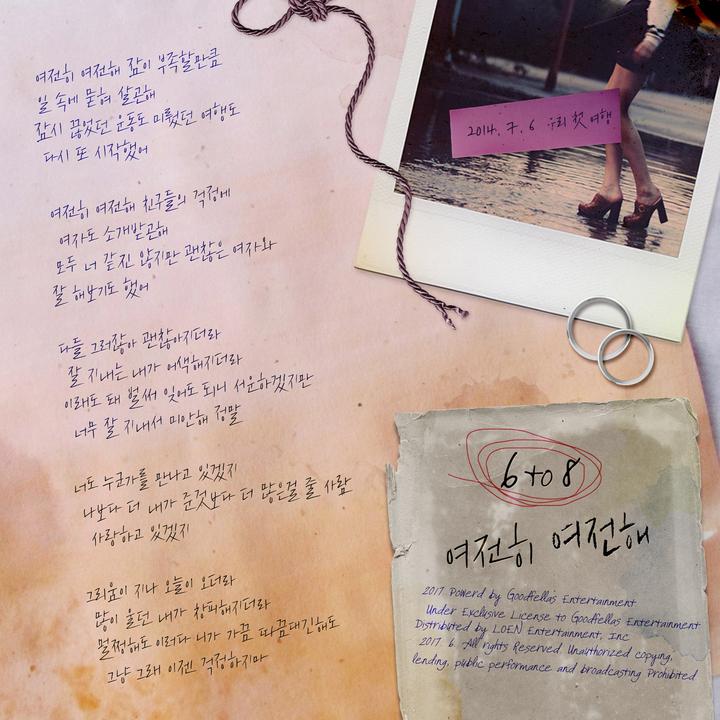 여전히 여전해 잠이 부족할만큼
일 속에 묻혀 살곤해
잠시 끊었던 운동도 미뤘던 여행도
다시 또 시작했어
여전히 여전해 친구들의 걱정에
여자도 소개받곤해
모두 너 같진 않지만 괜찮은 여자와
잘 해보기도 했어
다들 그러잖아 괜찮아지더라
잘 지내는 내가 어색해지더라
이래도 돼 벌써 잊어도 되니 서운하겠지만
너무 잘 지내서 미안해 정말
너도 누군가를 만나고 있겠지
나보다 더 내가 준것보다 더 많은걸 줄 사람
사랑하고 있겠지
그리움이 지나 오늘이 오더라
많이 울던 내가 창피해지더라
멀쩡해도 이러다 니가 가끔 따끔대긴해도
그냥 그래 이젠 걱정하지마
2014. 7. 6 우리 첫 여행
6 to 8
여전히 여전해
2017. Powerd by Goodfellas Entertainment
Under Exclusive License to Goodfellas Entertainment
Distributed by LOEN Entertainment, Inc
2017. 6. All rights Reserved. Unauthorized copying,
lending, public performance and broadcasting Prohibited